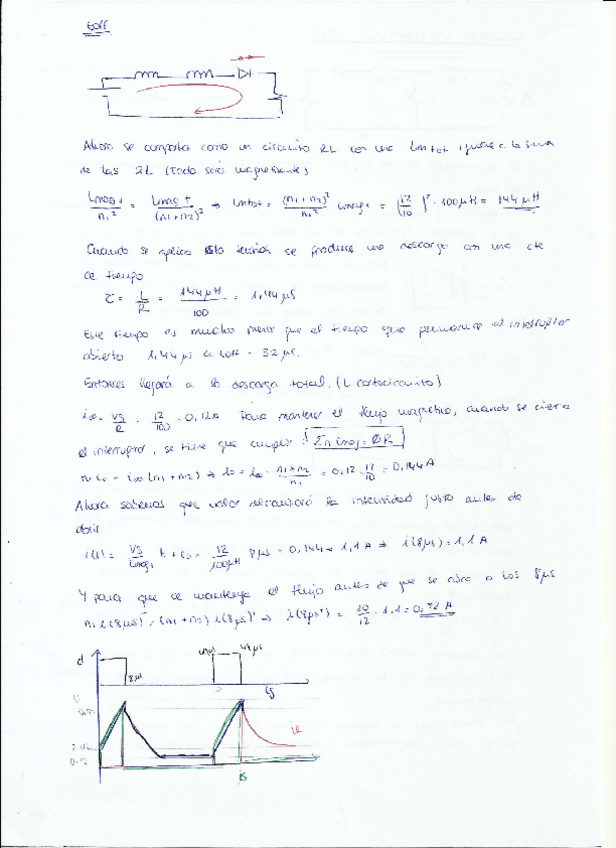 toff
Ahora se comporta como un circuito RL con una Lmtot igual a la suma
de las 2L (Toda será magnetizante)
Lmag1/n1² = Lmag t/(n1+n2)² ⇒ Lmtot = (n1+n2)²/n1² Lmag1 = (12/10)² · 100μH = 144μH
Cuando se aplica esta tensión se produce una descarga con una cte
de tiempo
τ = L/R = 144μH/100 = 1,44μS
Este tiempo es mucho menor que el tiempo que permanece el interruptor
abierto 1,44μs << toff = 32μs.
Entonces llegará a la descarga total. (L cortocircuito)
i∞ = VS/R = 12/100 = 0,12A Para mantener el flujo magnético, cuando se cierra
el interruptor, se tiene que cumplir: Σn imag = ØR
n1 i0 = i∞ (n1+n2) ⇒ i0 = i∞ · n1+n2/n1 = 0,12 · 12/10 = 0,144A
Ahora sabemos que valor alcanzará la intensidad justo antes de
abrir
i(t) = VS/Lmag1 t + i0 = 12/100μH 8μs = 0,144 = 1,1A ⇒ i(8μs) = 1,1A
Y para que se mantenga el flujo antes de que se abra a los 8μs
n1 i(8μs)⁻ = (n1+n2) i(8μs)⁺ ⇒ i(8μs⁺) = 10/12 · 1,1 = 0,92A
d
8μs
40μs
48μs
0.12
is